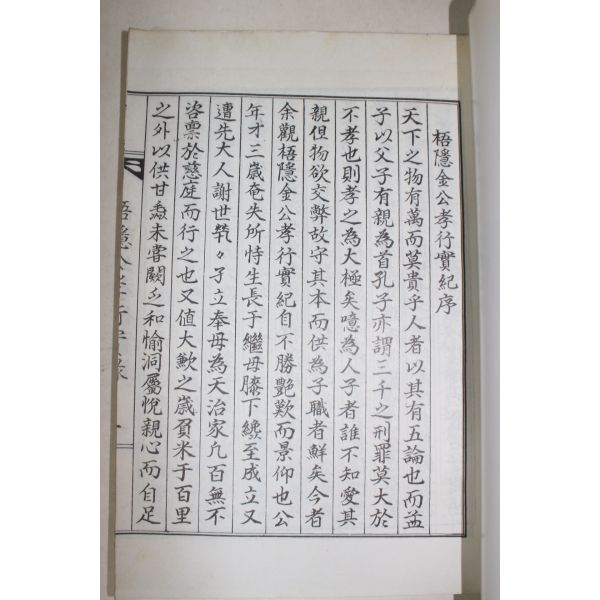 梧隱金公孝行實紀序
天下之物有萬而莫貴乎人者以其有五論也而孟
子以父子有親為首孔子亦謂三千之刑罪莫大於
不孝也則孝之為大極矣噫為人子者誰不知愛其
親但物欲交弊故守其本而供為子職者鮮矣今者
余觀梧隱金公孝行實紀自不勝艷歎而景仰也公
年才三歲奄失所恃生長于繼母膝下纔至成立又
遭先大人謝世煢々孑立奉母為天治家凢百無不
咨禀於慈庭而行之也又值大歉之歲負米于百里
之外以供甘毳未嘗闕乏和愉洞屬悅親心而自足